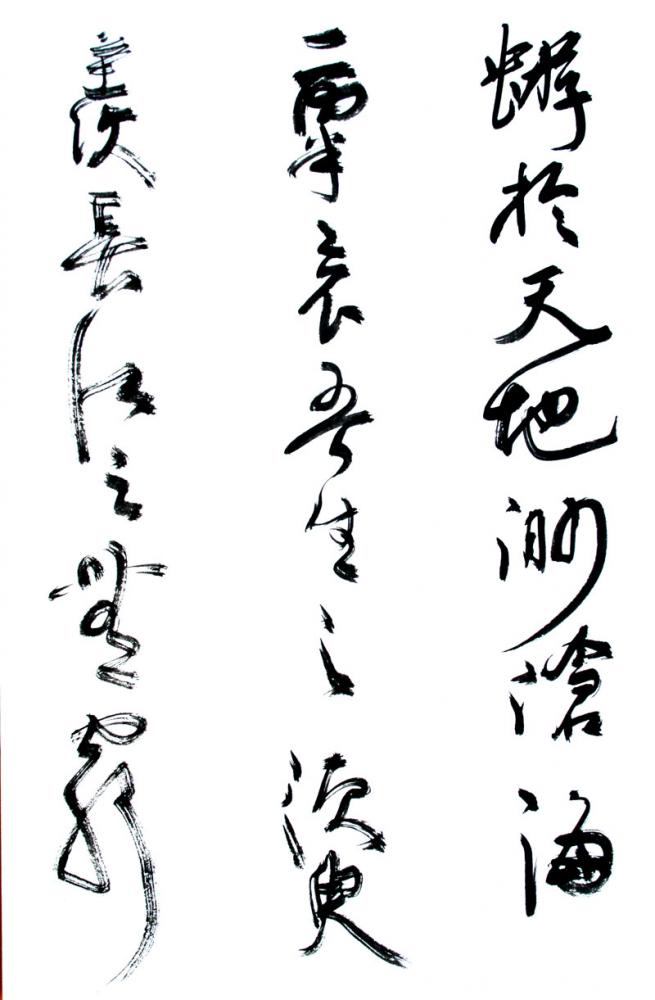 蝣於天地渺滄海
一粟哀吾生之須臾
羨長江之無窮